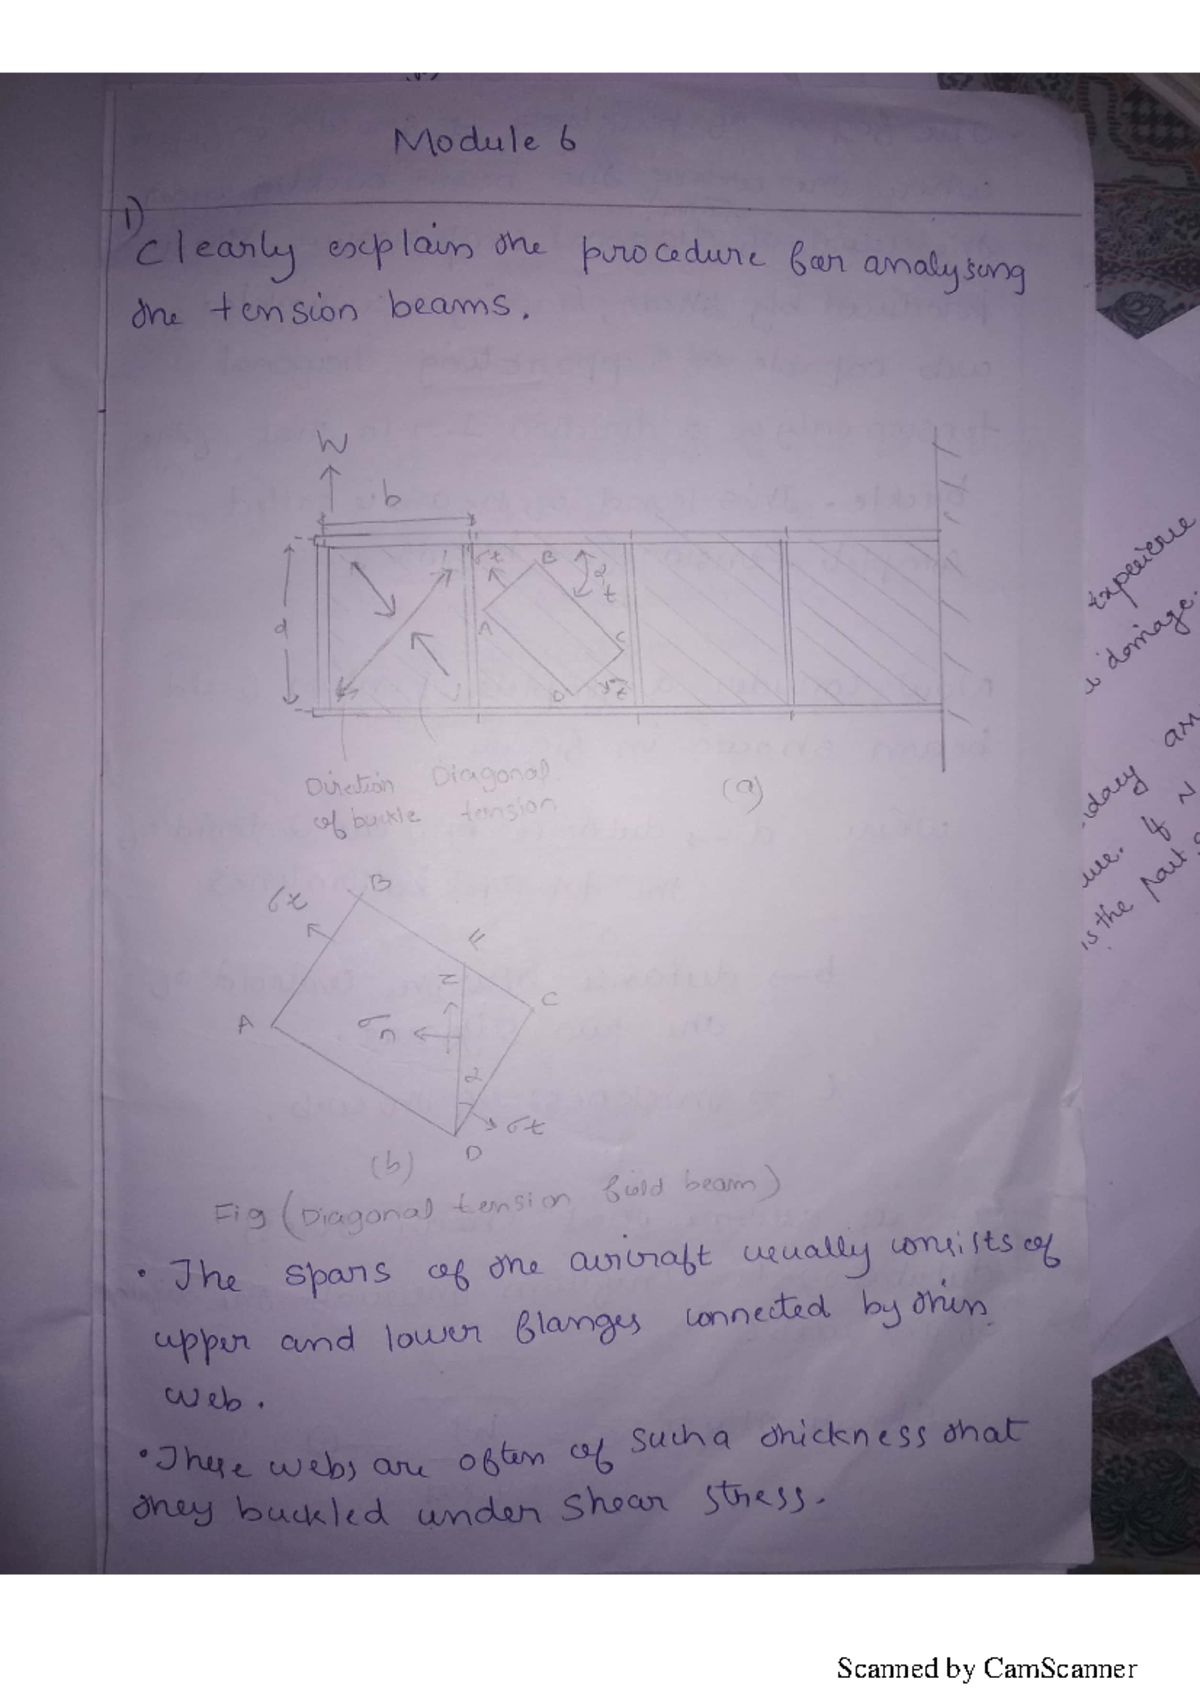 Module 6
1)
Clearly explain the procedure for analysing
the tension beams.
W
b
σt
B
α
t
d
A
C
D
σt
Direction Diagonal
of buckle tension
(a)
B
σt
F
τ
C
A
σn
α
σt
D
(b)
Fig (Diagonal tension field beam)
• The spars of the aircraft usually consists of
upper and lower flanges connected by thin
web.
• These webs are often of such a thickness that
they buckled under shear stress.
Experience
damage.
If N
is the part
Scanned by CamScanner